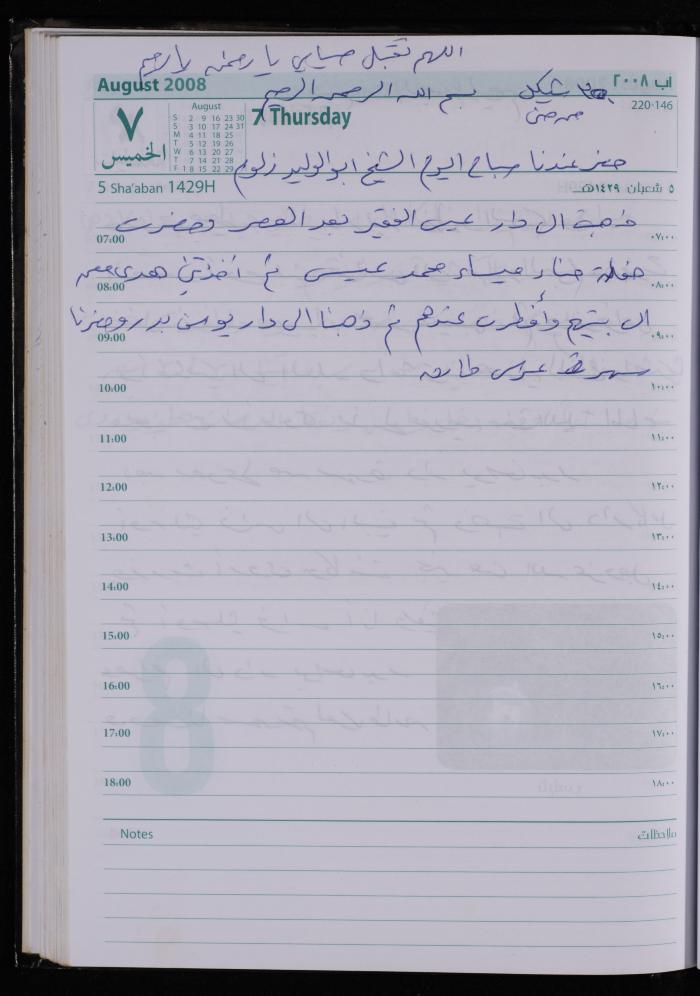 اللهم تقبل صيامي يا رحمن يا رحيم
August 2008
آب ٢٠٠٨
بسم الله الرحمن الرحيم
شيكل
220-146
August
S 2 9 16 23 30
S 3 10 17 24 31
M 4 11 18 25
T 5 12 19 26
W 6 13 20 27
T 7 14 21 28
F 1 8 15 22 29
٧
الخميس
7 Thursday
حضر عندنا صباح اليوم الشيخ ابو الوليد زلوم
5 Sha'aban 1429H
٥ شعبان ١٤٢٩هـ
ذهبت الى دار عيسى الفقير بعد العصر وحضرت
07:00 ٠٧:٠٠
حفلة حناء ميساء محمد عيسى ثم أخذتني هدى معهم
08:00 ٠٨:٠٠
الى بيتهم وأفطرت عندهم ثم ذهبنا الى دار يونس بدر وحضرنا
09:00 ٠٩:٠٠
سهرة عرس طارق
10:00 ١٠:٠٠
11:00 ١١:٠٠
12:00 ١٢:٠٠
13:00 ١٣:٠٠
14:00 ١٤:٠٠
15:00 ١٥:٠٠
16:00 ١٦:٠٠
17:00 ١٧:٠٠
18:00 ١٨:٠٠
Notes ملاحظات